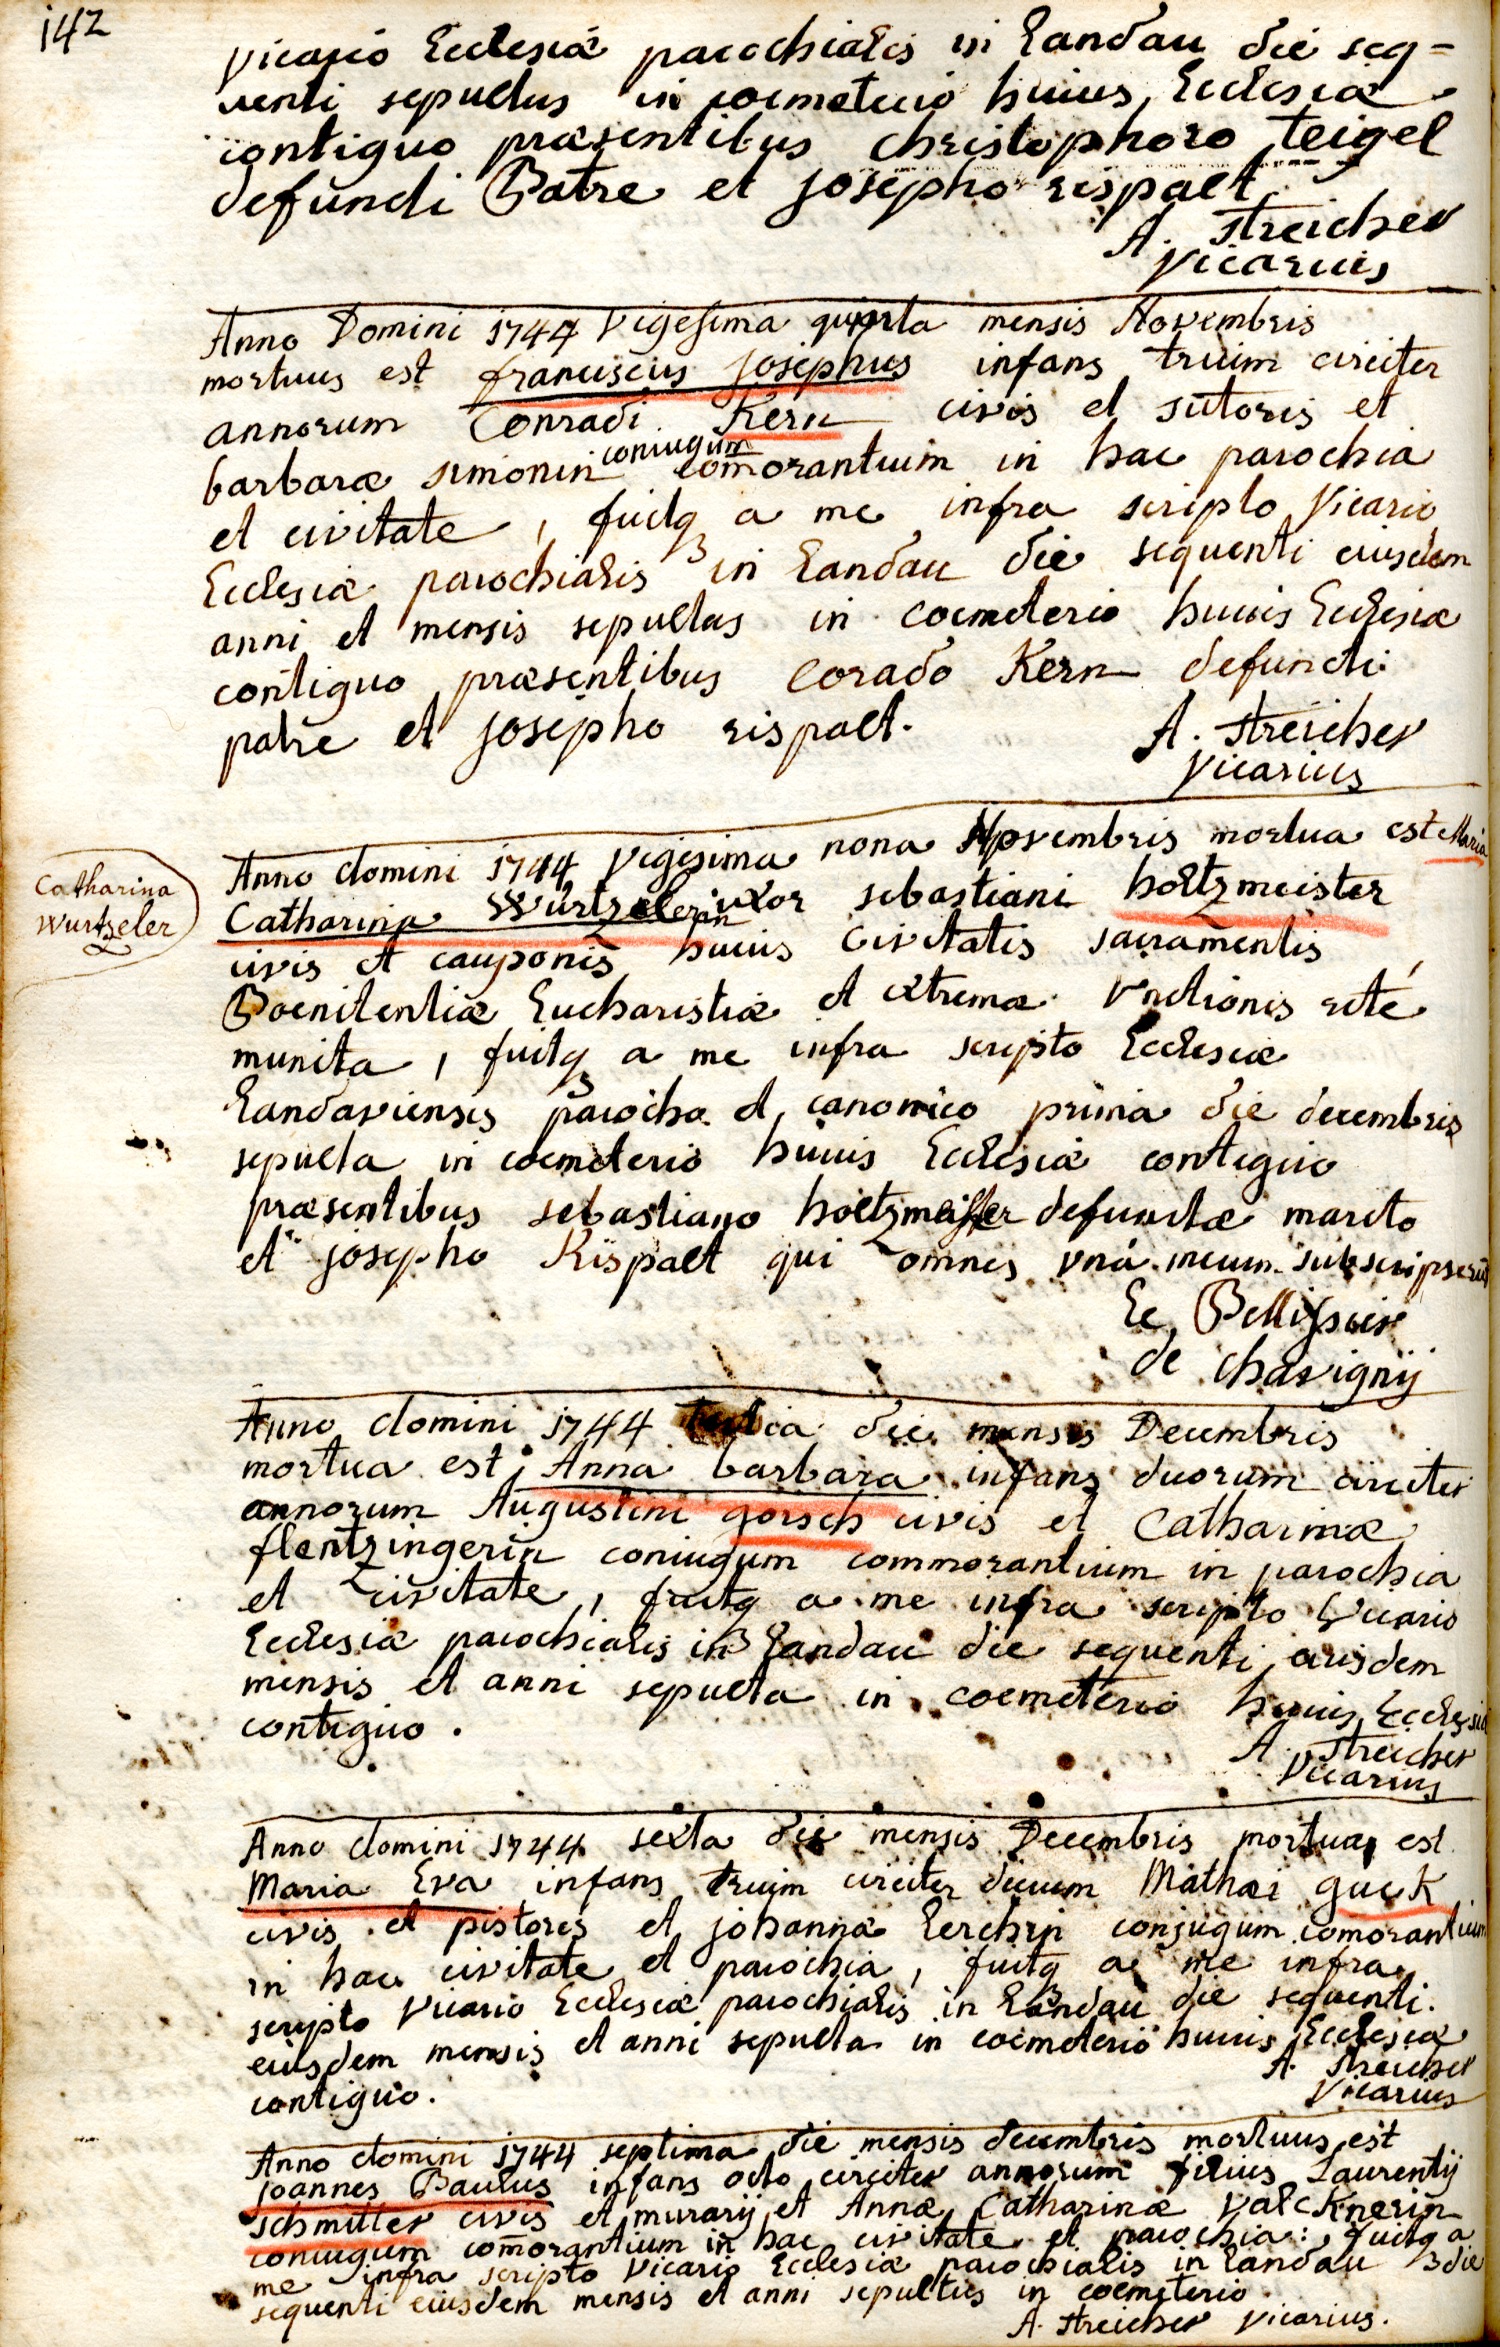 142
Vicario Ecclesiæ parochialis in Landau die seq=
uenti sepultus in coemeterio huius Ecclesiæ
contiguo præsentibus christophoro teigel
defuncti Patre et josepho rispalt.
A. Streicher
Vicarius
Anno Domini 1744 Vigesima quarta mensis Novembris
mortuus est franciscus josephus infans trium circiter
annorum Conradi Kern civis et sutoris et
barbaræ simonin coniugum com̄orantium in hac parochia
et civitate, fuitq a me infra scripto Vicario
Ecclesiæ parochialis in Landau die sequenti eiusdem
anni et mensis sepultus in coemeterio huius Ecclesiæ
contiguo præsentibus Corado Kern defuncti
patre et josepho rispalt.
A. Streicher
Vicarius
Anno domini 1744 Vigesima nona Novembris mortua est Maria
Catharina Wurtzelerin uxor sebastiani holtzmeister
Catharina
Wurtzeler
civis et cauponis huius Civitatis sacramentis
Poenitentiæ Eucharistiæ et extremæ Vnctionis rité
munita, fuitq a me infra scripto Ecclesiæ
Landaviensis parocho et canonico prima die decembris
sepulta in coemeterio huius Ecclesiæ contiguo
præsentibus sebastiano holtzmeister defunctæ marito
et josepho Rispalt qui omnes vná mecum subscripserūt
de chavignij
Anno domini 1744 tertia die mensis Decembris
mortua est Anna barbara infans duorum circiter
annorum Augustini gorsch civis et Catharinæ
flentzingerin coniugum commorantium in parochia
et civitate, fuitq a me infra scripto Vicario
Ecclesiæ parochialis in Landau die sequenti eiusdem
mensis et anni sepulta in coemeterio huius Ecclesiæ
contiguo.
A. Streicher
Vicarius
Anno domini 1744 sexta die mensis Decembris mortua est
Maria Eva infans trium circiter dierum Mathæi guck
civis et pistoris et johannæ Lerchin conjugum comorantium
in hac civitate et parochia, fuitq a me infra
scripto Vicario Ecclesiæ parochialis in Landau die sequenti
eiusdem mensis et anni sepulta in coemeterio huius Ecclesiæ
contiguo.
A. Streicher
Vicarius
Anno domini 1744 septima die mensis decembris mortuus est
joannes Paulus infans octo circiter annorum filius Laurentij
schmitter civis et murarij et Annæ Catharinæ Valcknerin
coniugum com̄orantium in hac civitate et parochia:, fuitq a
me infra scripto Vicario Ecclesiæ parochialis in Landau die
sequenti eiusdem mensis et anni sepultus in coemeterio.
A. Streicher Vicarius.